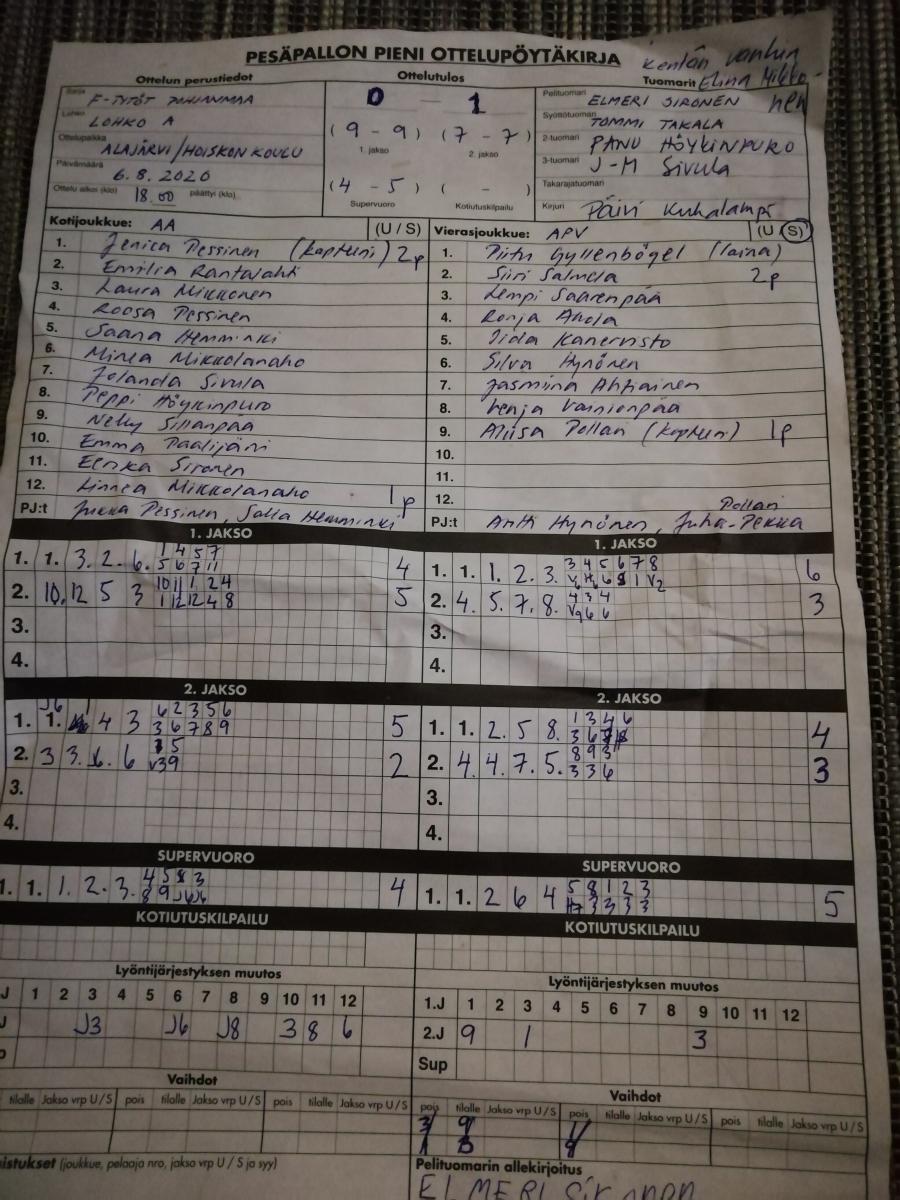 PESÄPALLON PIENI OTTELUPÖYTÄKIRJA
Kentän vanhin
Ottelun perustiedot
Ottelutulos
Tuomarit Elina Mikko-
nen
Sarja F-TYTÖT POHJANMAA
Lohko LOHKO A
Ottelupaikka ALAJÄRVI/HOISKON KOULU
Päivämäärä 6.8.2020
Ottelu alkoi (klo) 18.00 päättyi (klo)
0 - 1
(9 - 9) (7 - 7)
1. jakso 2. jakso
(4 - 5) ( - )
Supervuoro Kotiutuskilpailu
Pelituomari ELMERI SIRONEN
Syöttötuomari TOMMI TAKALA
2-tuomari PANU HÖYKINPURO
3-tuomari J-M Sivula
Takarajatuomari
Kirjuri Päivi Kuhalampi
Kotijoukkue: AA (U / S)
1. Jenica Pessinen (kapteeni) 2p
2. Emilia Rantalahti
3. Laura Mikkonen
4. Roosa Pessinen
5. Saana Hemminki
6. Minea Mikkolanaho
7. Jolanda Sivula
8. Peppi Höykinpuro
9. Nelly Sillanpää
10. Emma Paalijärvi
11. Eerika Sironen
12. Linnea Mikkolanaho 1p
PJ:t Jukka Pessinen, Salla Hemminki
Vierasjoukkue: APV (U / S)
1. Piitu Gyllenbögel (laina)
2. Siiri Salmela 2p
3. Lempi Saarenpää
4. Ronja Ahola
5. Iida Kanervisto
6. Silva Hynönen
7. Jasmiina Ahtiainen
8. Venja Vainionpää
9. Aliisa Pollari (kapteeni) 1p
10.
11.
12.
PJ:t Antti Hynönen, Juha-Pekka Pollari
1. JAKSO
1. 1. 3. 2. 6. 1 4 5 7 4
5 6 7 11
2. 10. 12 5 3 10 11 1 2 4 5
1 12 12 4 8
3.
4.
1. JAKSO
1. 1. 1. 2. 3. 3 4 5 6 7 8 6
2. 4. 5. 7. 8. 4 3 4 3
3.
4.
2. JAKSO
1. 1. 4 3 6 2 3 5 6 5
3 6 7 8 9
2. 3 3. 6. 6 2
3.
4.
2. JAKSO
1. 1. 2. 5 8. 1 3 4 6 4
2. 4. 4. 7. 5. 8 9 3 3
3 3 6
3.
4.
SUPERVUORO
1. 1. 1. 2. 3. 4
SUPERVUORO
1. 1. 2 6 4 5 8 1 2 3 5
KOTIUTUSKILPAILU
KOTIUTUSKILPAILU
Lyöntijärjestyksen muutos
J 1 2 3 4 5 6 7 8 9 10 11 12
J J3 J6 J8 3 8 6
Lyöntijärjestyksen muutos
1.J 1 2 3 4 5 6 7 8 9 10 11 12
2.J 9 1 3
Sup
Vaihdot
tilalle Jakso vrp U / S pois tilalle Jakso vrp U / S pois tilalle Jakso vrp U / S
Vaihdot
pois tilalle Jakso vrp U / S pois tilalle Jakso vrp U / S pois tilalle Jakso vrp U / S
istukset (joukkue, pelaaja nro, jakso vrp U / S ja syy)
Pelituomarin allekirjoitus
ELMERI Sironen